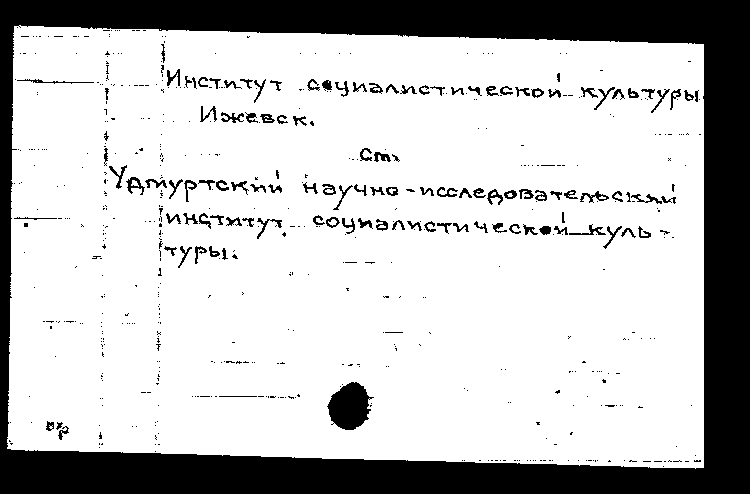 Институт социалистической культуры
Ижевск.
См.
Удмуртский научно-исследовательский
институт социалистической куль-
туры.